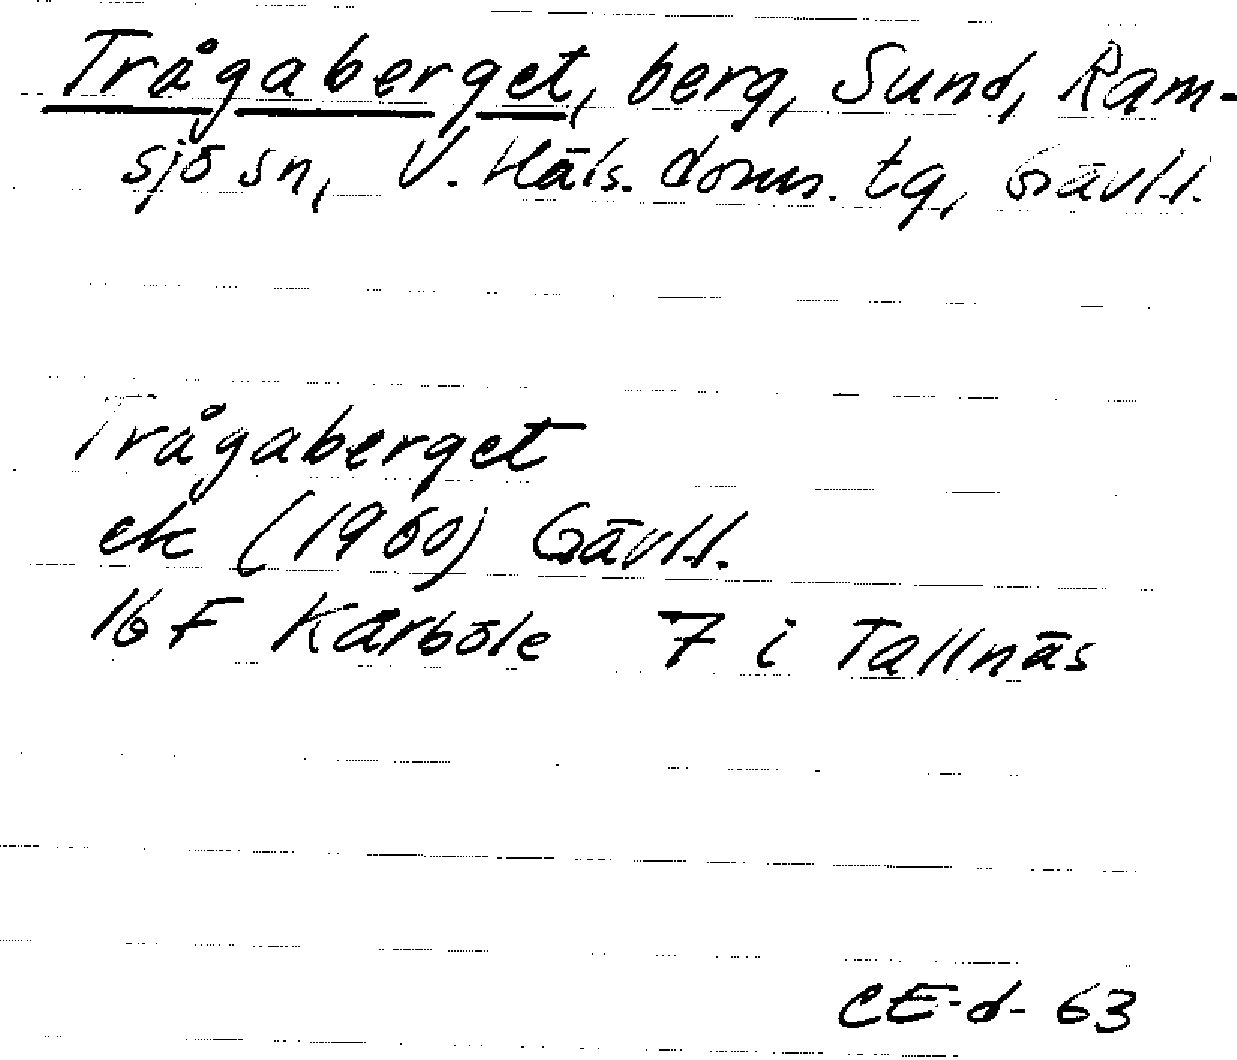 Trågaberget, berg, Sund, Ram-
sjö sn, V. Häls. doms. tg, Gävl.l.
Trågaberget
ek (1960) Gävl.l.
16 F Kårböle 7 i Tallnäs
CE-d- 63